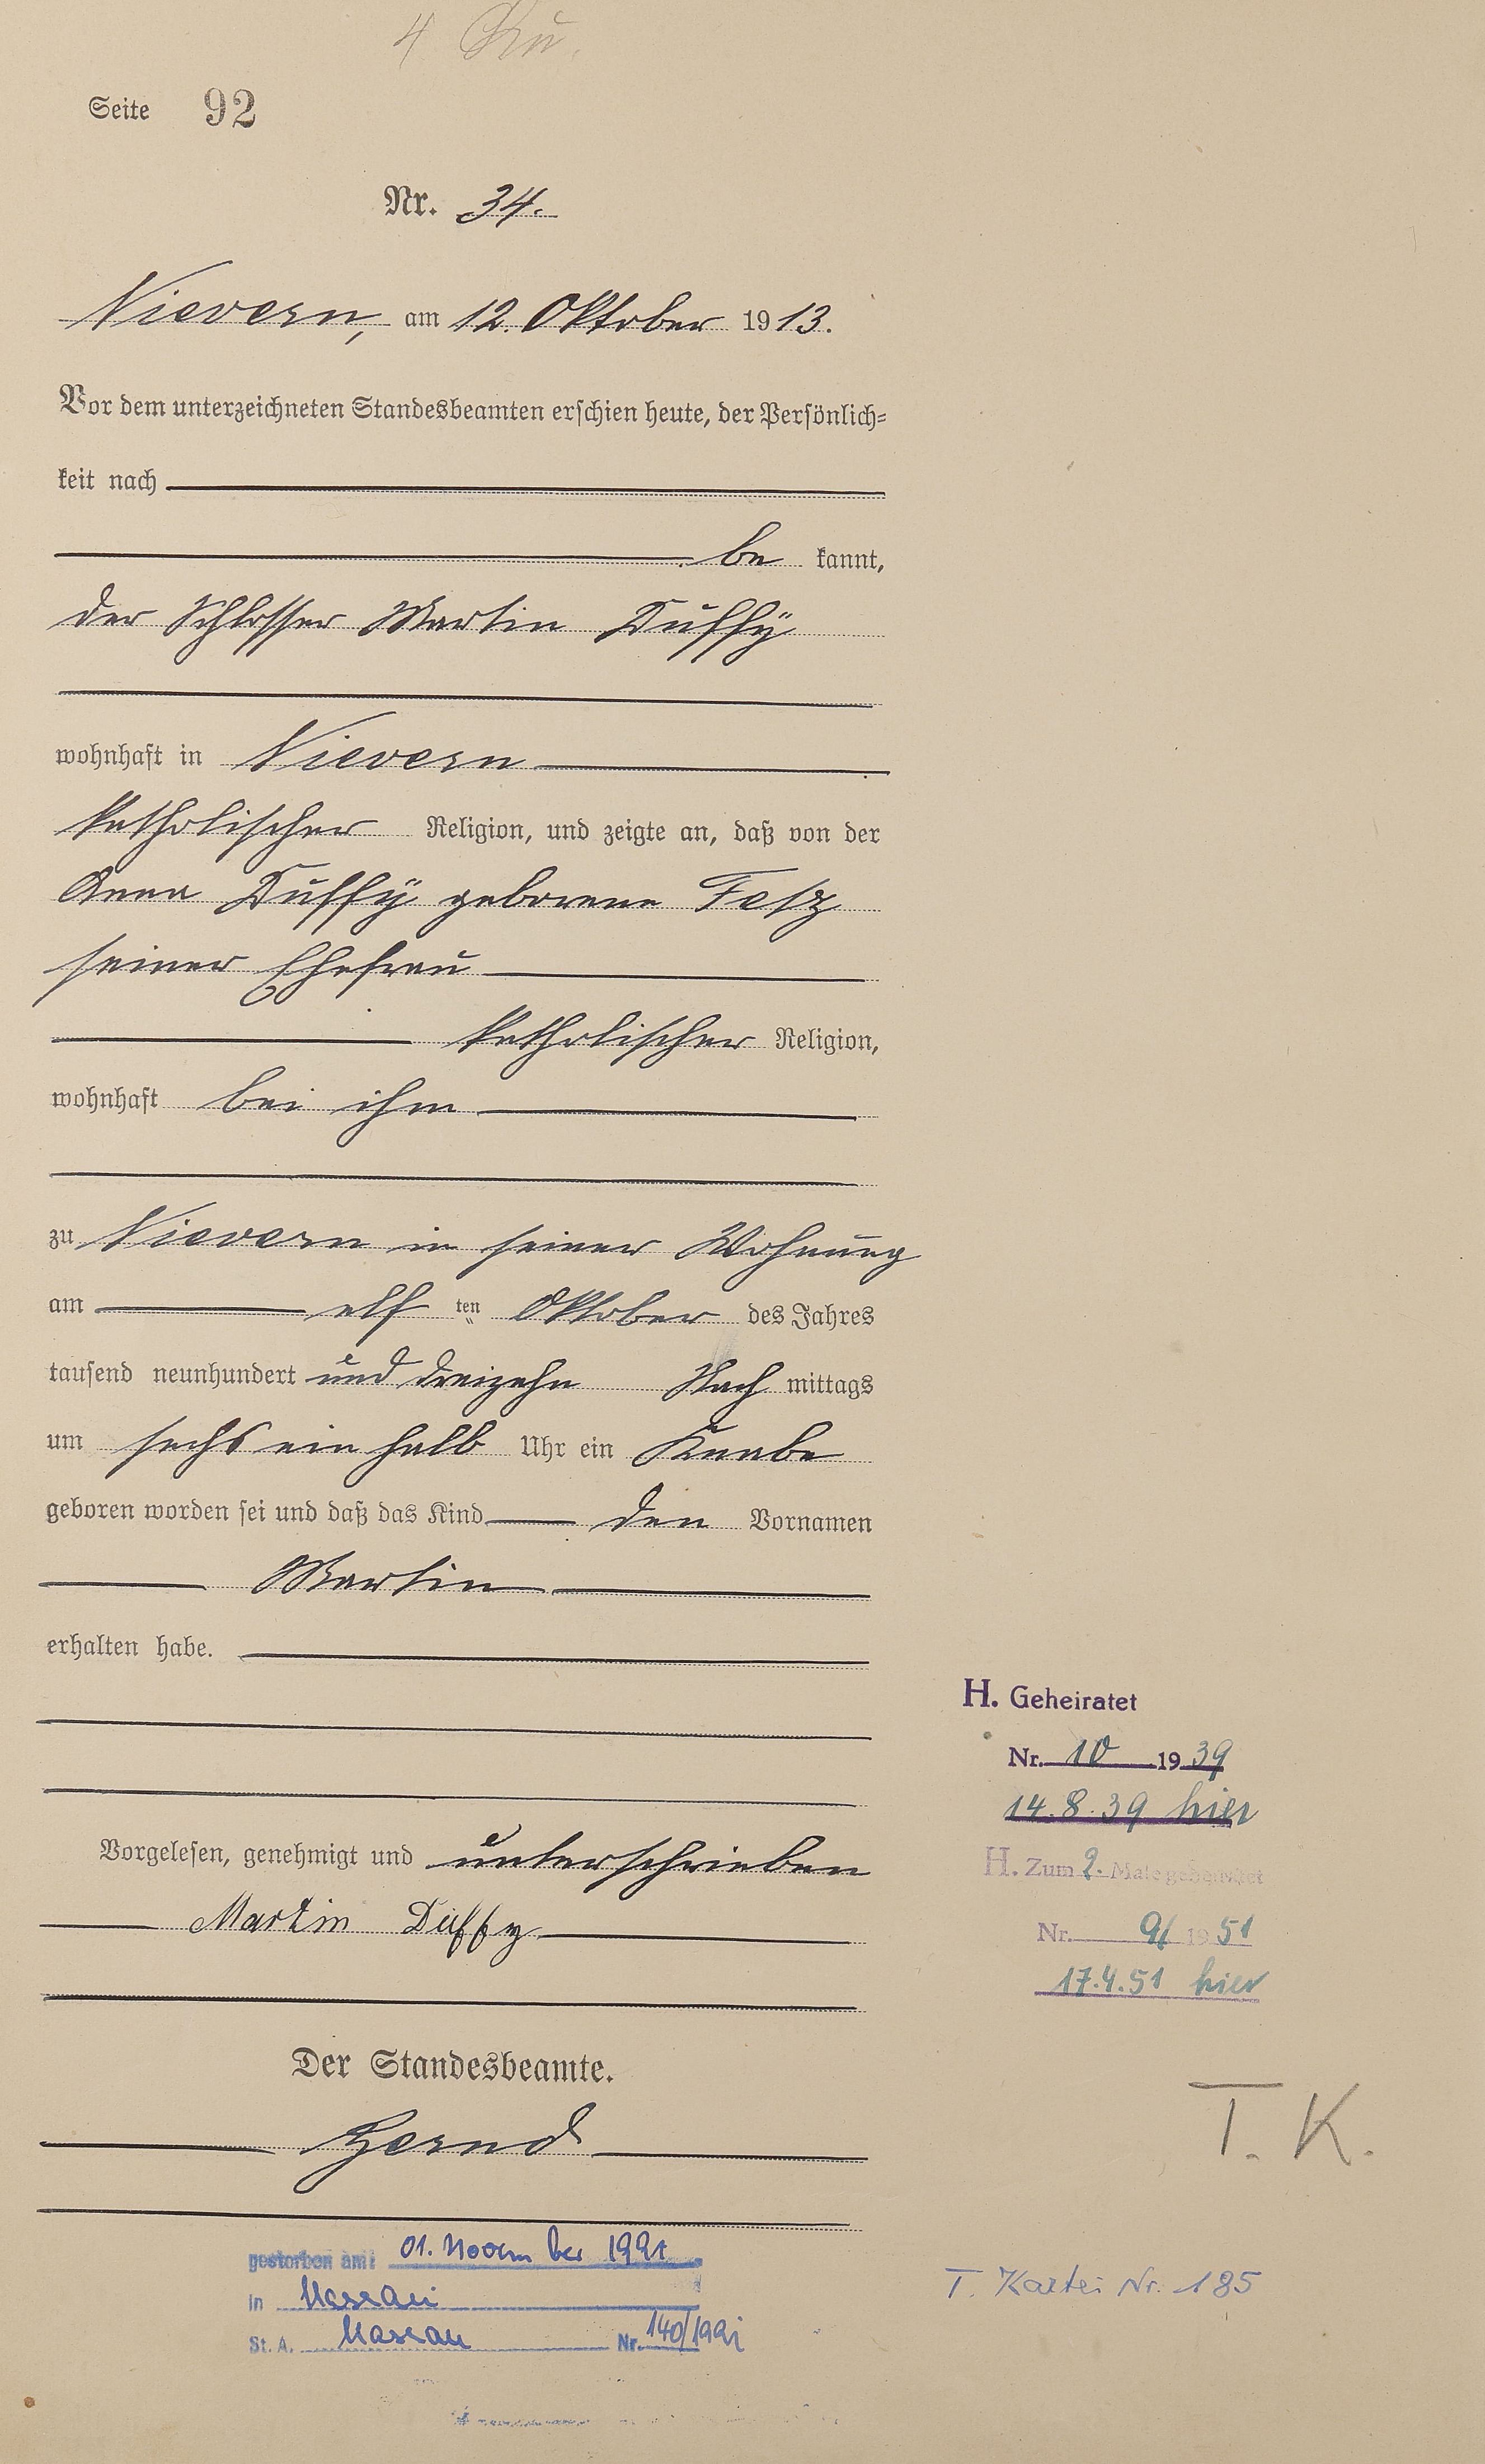 Seite 92
Nr. 34.
Nievern, am 12. Oktober 1913.
Vor dem unterzeichneten Standesbeamten erschien heute, der Persönlich-
keit nach
be kannt,
der Schlosser Martin Duffÿ
wohnhaft in Nievern
katholischer Religion, und zeigte an, daß von der
Anna Duffÿ geborene Fetz
seiner Ehefrau
katholischer Religion,
wohnhaft bei ihm
zu Nievern in seiner Wohnung
am elf ten Oktober des Jahres
tausend neunhundert und dreizehn Nach mittags
um sechs ein halb Uhr ein Knabe
geboren worden sei und daß das Kind den Vornamen
Martin
erhalten habe.
Vorgelesen, genehmigt und unterschrieben
Martin Duffy
Der Standesbeamte.
gestorben am: 01. November 1991
in Nassau
St. A. Nassau Nr. 140/1991
H. Geheiratet
Nr. 10 1939
14.8.39 hier
H. Zum 2. Male geheiratet
Nr. 9/ 1951
17.4.51 hier
T. K.
T. Kartei Nr. 185